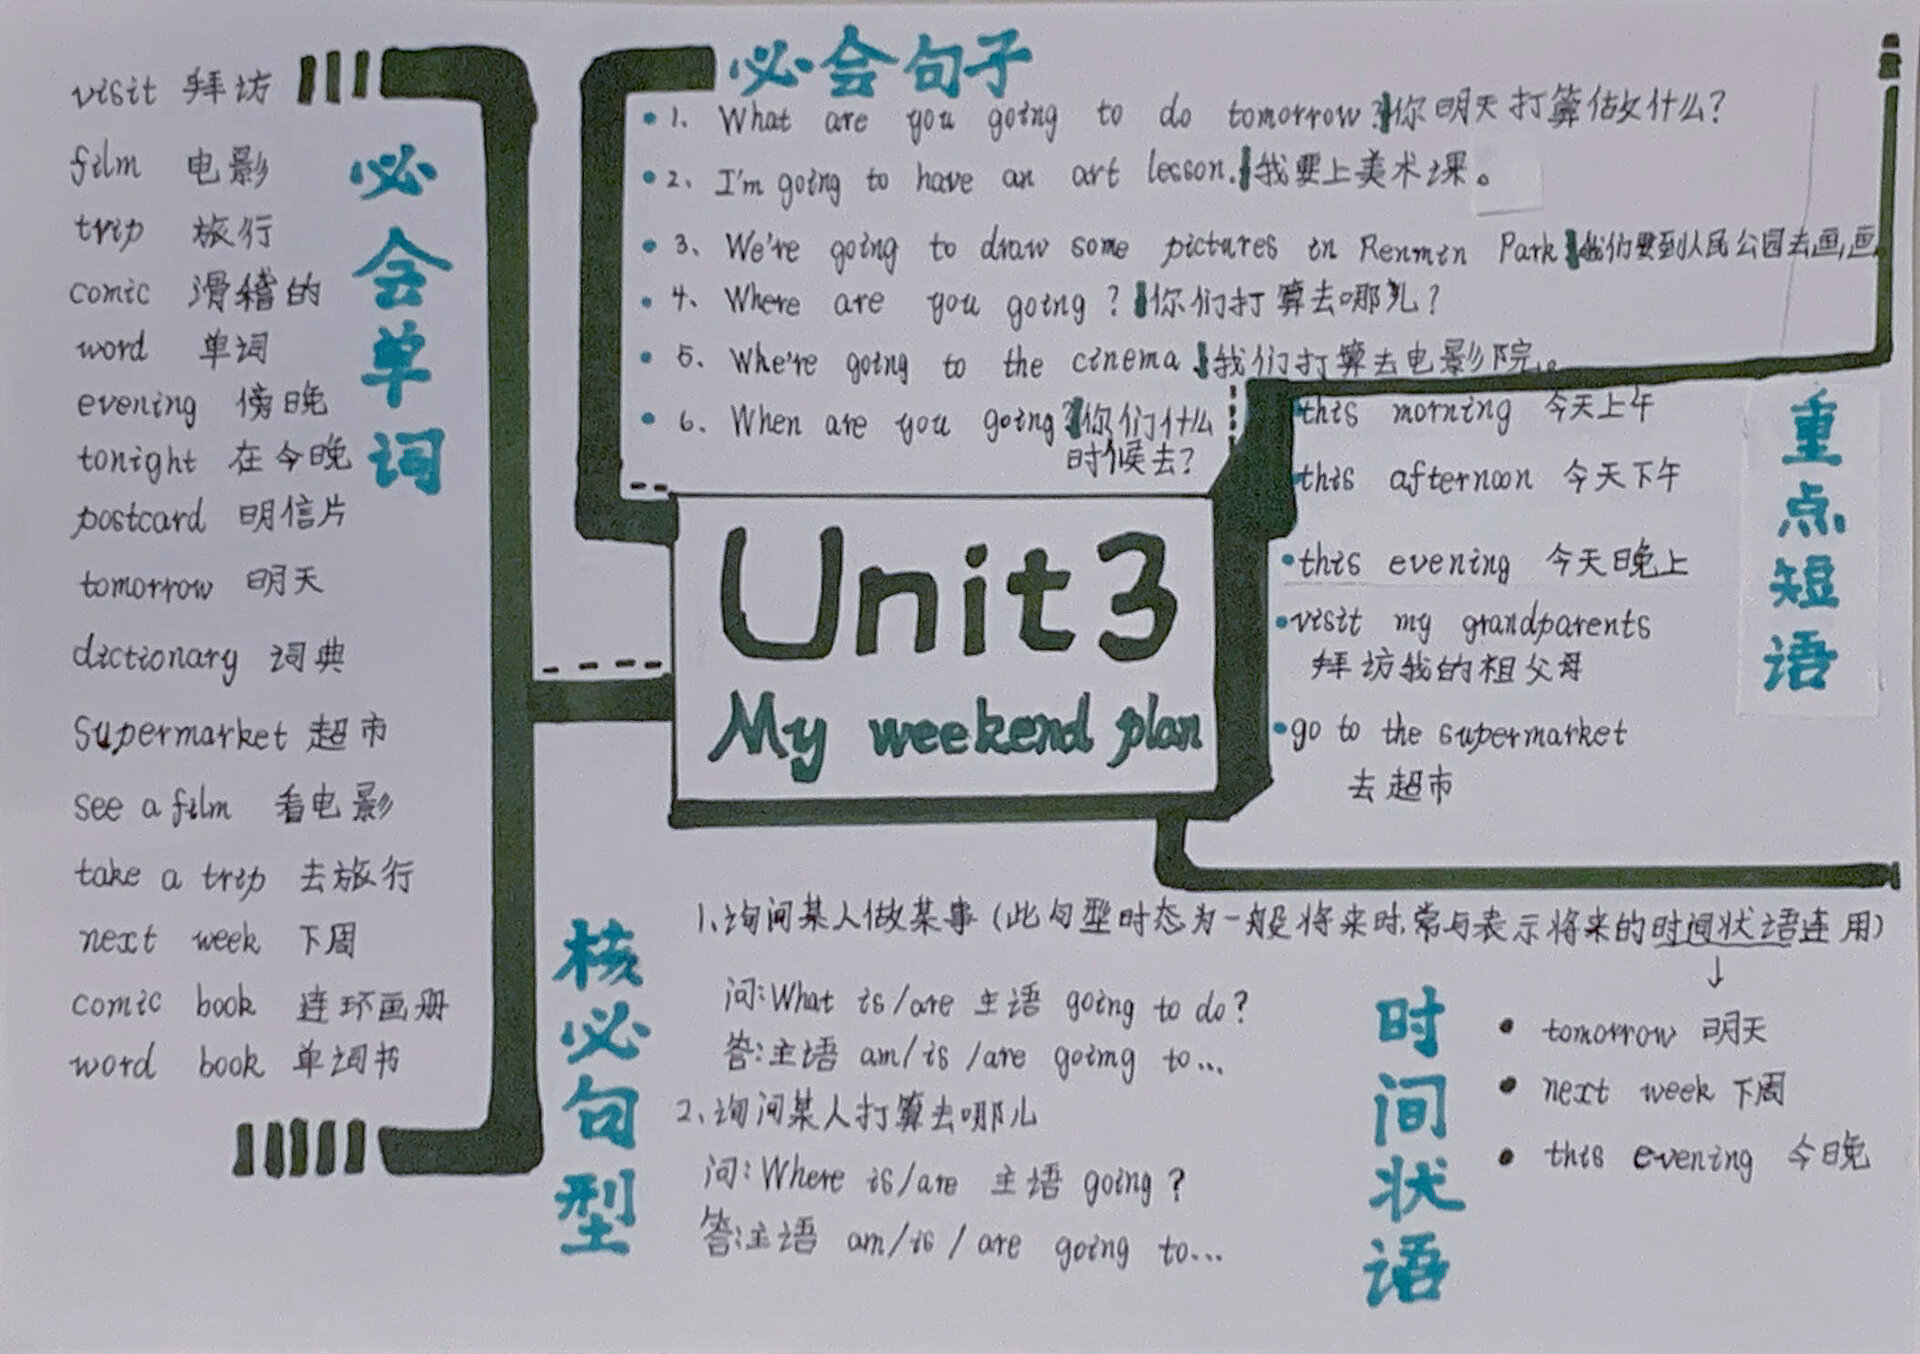 必会单词
visit 拜访
film 电影
trip 旅行
comic 滑稽的
word 单词
evening 傍晚
tonight 在今晚
postcard 明信片
tomorrow 明天
dictionary 词典
Supermarket 超市
see a film 看电影
take a trip 去旅行
next week 下周
comic book 连环画册
word book 单词书
必会句子
1、What are you going to do tomorrow? 你明天打算做什么?
2、I'm going to have an art lesson. 我要上美术课。
3、We're going to draw some pictures in Renmin Park 我们要到人民公园去画画
4、Where are you going? 你们打算去哪儿?
5、Whe're going to the cinema 我们打算去电影院。
6、When are you going? 你们什么
时候去?
Unit3
My weekend plan
重点短语
this morning 今天上午
this afternoon 今天下午
this evening 今天晚上
visit my grandparents
拜访我的祖父母
go to the supermarket
去超市
核必句型
1、询问某人做某事(此句型时态为一般将来时,常与表示将来的时间状语连用)
↓
问:What is/are 主语 going to do?
答:主语 am/is/are goimg to...
2、询问某人打算去哪儿
问:Where is/are 主语 going?
答:主语 am/is/are going to...
时间状语
tomorrow 明天
next week 下周
this evening 今晚